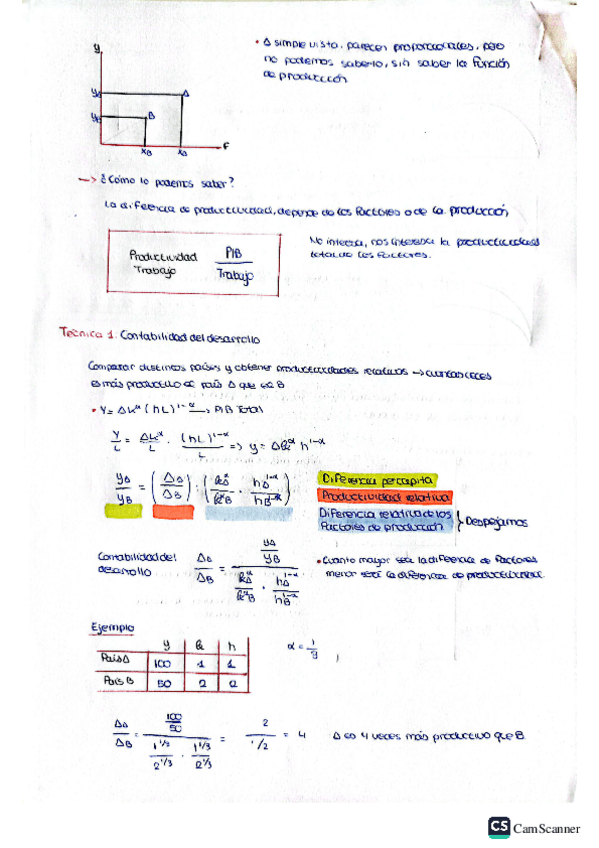 • A simple vista, parecen proporcionales, pero
no podemos saberlo, sin saber la función
de producción
y
yA
A
yB
B
xB
xA
F
→ ¿Cómo lo podemos saber?
La diferencia de productividad, depende de los factores o de la producción
Productividad
Trabajo
PIB
Trabajo
No interesa, nos interesa la productividad
total de los factores.
Tecnica 1. Contabilidad del desarrollo
Comparar distintos países y obtener productividades relativas → cuantas veces
es más productivo el país A que el B
• Y = AK^α (hL)^1-α → PIB Total
Y/L = AK^α/L · (hL)^1-α/L => y = Ak^α h^1-α
yA/yB = (AA/AB) · (kA^α/kB^α · hA^1-α/hB^1-α)
Diferencia percapita
Productividad relativa
Diferencia relativa de los
Factores de producción } Despejamos
Contabilidad del
desarrollo
AA/AB = (yA/yB) / (kA^α/kB^α · hA^1-α/hB^1-α)
• Cuanto mayor sea la diferencia de factores
menor será la diferencia de productividad
Ejemplo
y k h
País A 100 1 1
País B 50 2 2
α = 1/3
AA/AB = (100/50) / (1^1/2/2^1/3 · 1^1/3/2^1/3) = 2 / 1/2 = 4 A es 4 veces más productivo que B
CS CamScanner